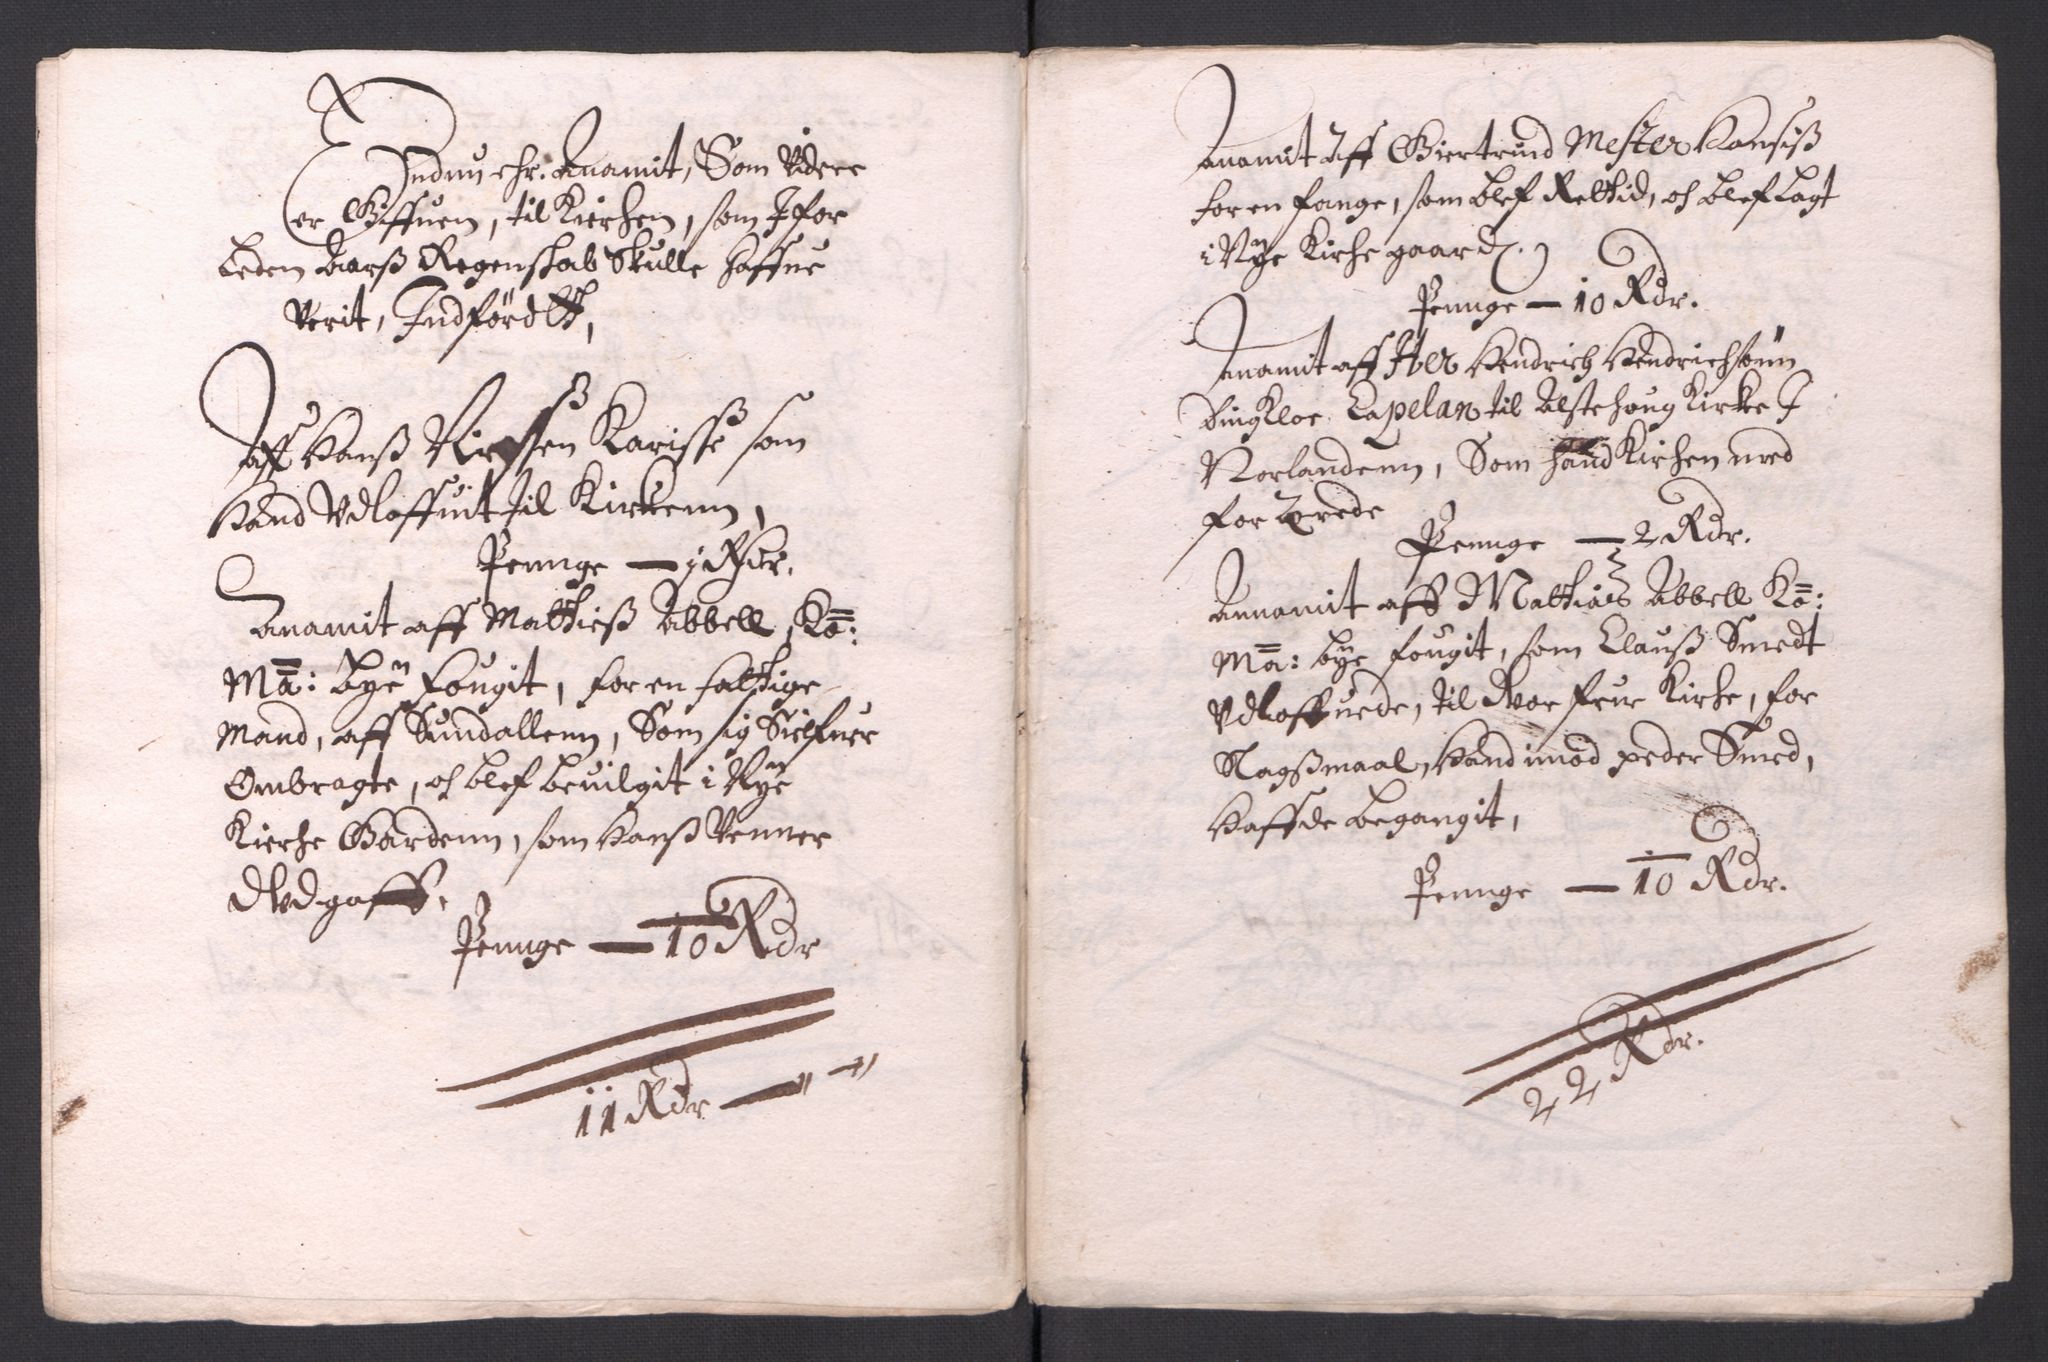 Endnu ehr. Anamit, Som Videre
er Giffuen, til Kierchen, som I for
leden Aarß Regenskab Skulle haffue
Verit, Indfördtt,
Aff Hanß Nielsen Karisse som
Hand Vdloffuit til Kirkenn,
Penninge — 1 Rdr.
Anamit aff Matthiß Abbell, Ko:
Ma: bye fougit, for en fattige
Mand, aff Sundallenn, Som sig Sielfuer
Ombragte, och blef beuilgit i Nye
Kierche Gardenn, som Hanß Venner
Vdgaff.
Pennge — 10 Rdr
11 Rdr —
Anamit Aff Giertrud Mester Hansiß
for en fange, som blef Rettid, och blef lagt
i Nye Kirche gaard.
Pennge — 10 Rdr.
Anamit aff Her Hendrich Hendrichsönn
Capelan til Alstehoug Kirke I
Norlandenn, Som hand Kirchen med
for Ærede
Pennge — 2 Rdr.
Annamit aff Matthias Abbell Ko:
Ma: bye fougit, som Clauß Smedt
Vdloffuede, til Vor frue Kirche, for
Slagßmaal, Hand imod peder Smed,
Haffde begangit,
Pennge — 10 Rdr.
22 Rdr.